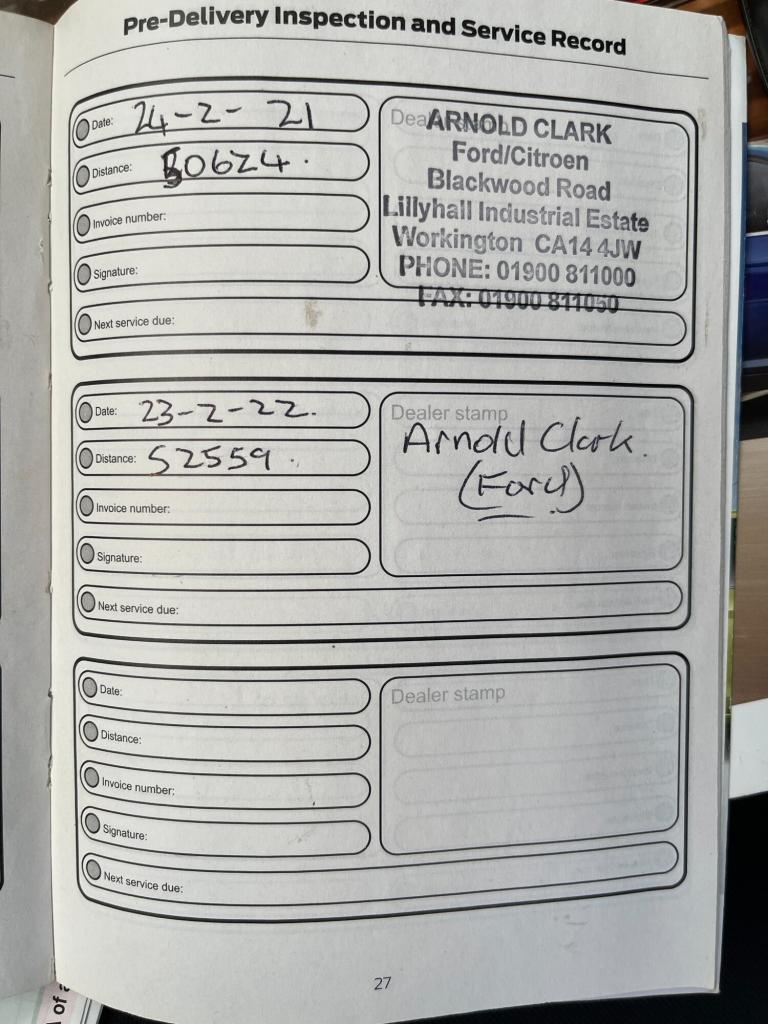 Pre-Delivery Inspection and Service Record
Date: 24-2-21
Distance: 50624.
Invoice number:
Signature:
Next service due:
Dea
ARNOLD CLARK
Ford/Citroen
Blackwood Road
Lillyhall Industrial Estate
Workington CA14 4JW
PHONE: 01900 811000
FAX: 01900 811050
Date: 23-2-22.
Distance: 52559.
Invoice number:
Signature:
Next service due:
Dealer stamp
Arnold Clark.
(Ford)
Date:
Distance:
Invoice number:
Signature:
Next service due:
Dealer stamp
27
of